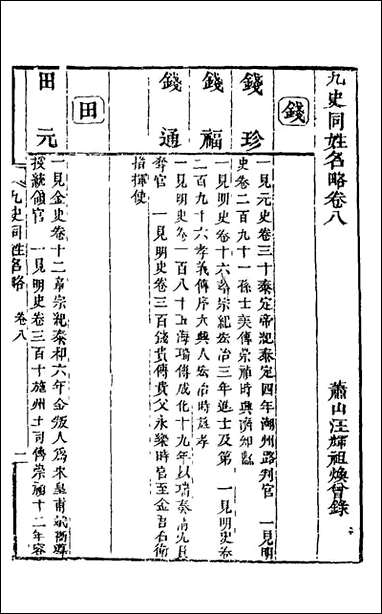 九史同姓名略卷八
蕭山汪輝祖煥曾錄
錢
錢珍
一見元史卷三十泰定帝紀泰定四年湖州路判官 一見明
史卷二百九十一孫士美傳崇禎時興濟知縣
錢福
一見明史卷十六孝宗紀宏治三年進士及第 一見明史卷
二百九十六孝義傳序大興人宏治時旌孝
錢通
一見明史卷一百八十五海瑞傳成化十九年以瑞奏
奪官 一見明史卷三百錢貴傳貴父永樂時官至金吾右衛
指揮使
田
田元
一見金史卷十二章宗紀泰和六年金叛人為宋皇甫斌
授統領官 一見明史卷三百十施州土司傳崇禎十二年容
九史同姓名略
卷八